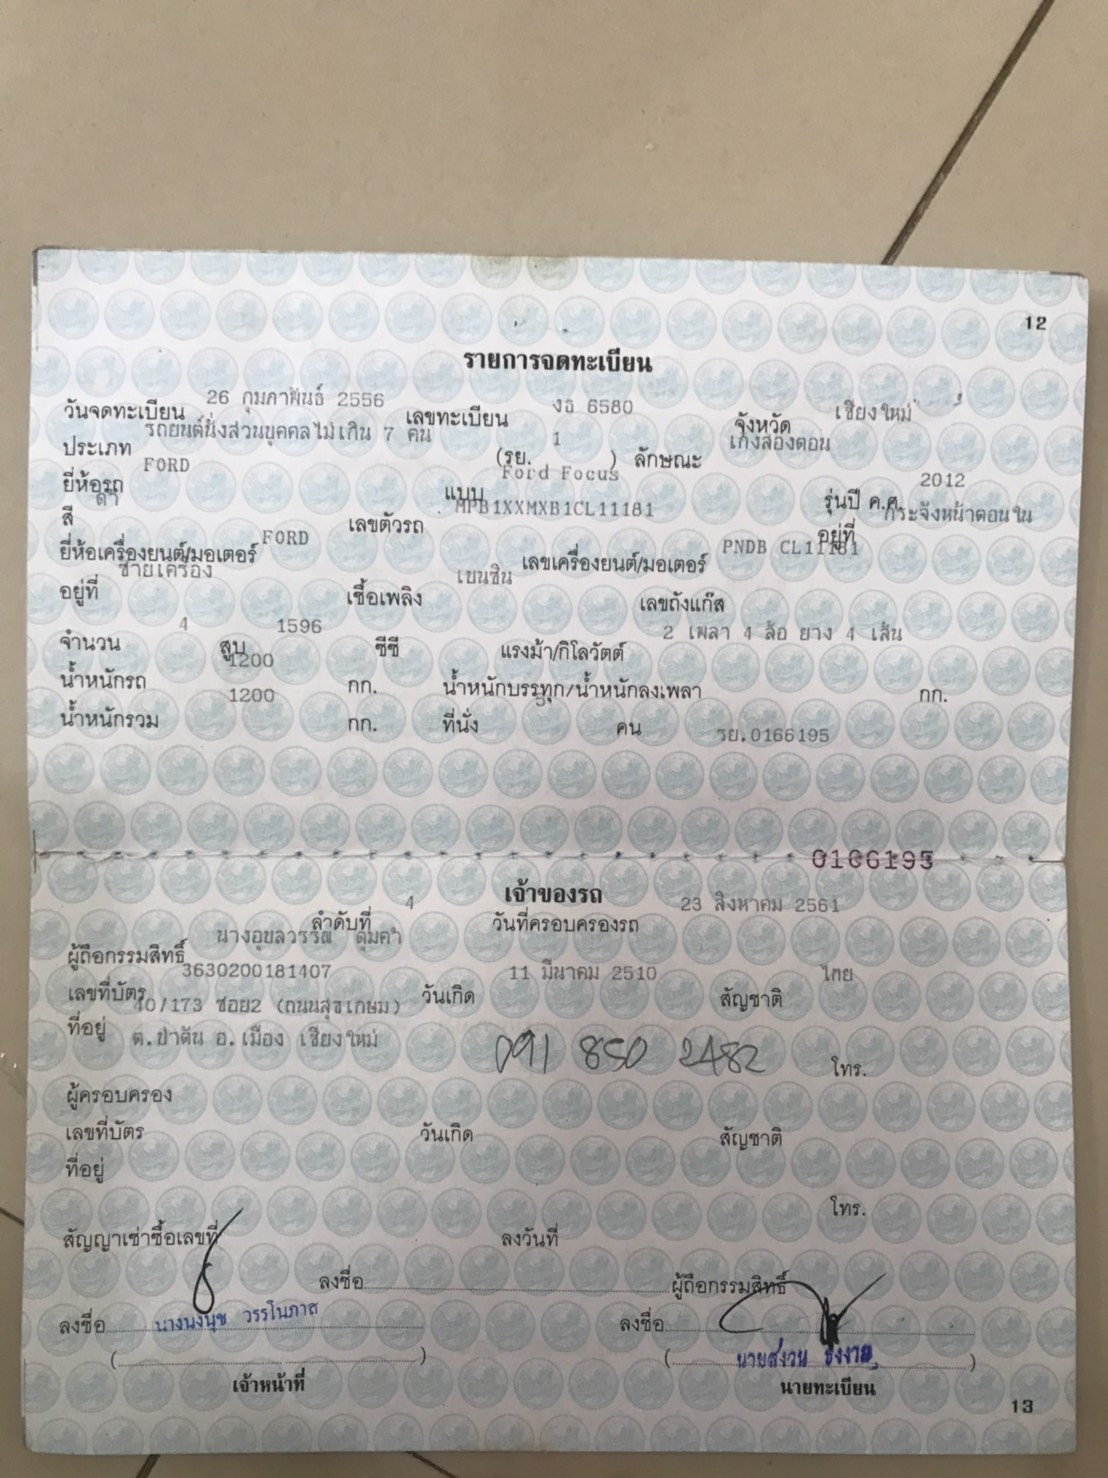 12
รายการจดทะเบียน
วันจดทะเบียน 26 กุมภาพันธ์ 2556 เลขทะเบียน งธ 6580 จังหวัด เชียงใหม่
ประเภท รถยนต์นั่งส่วนบุคคลไม่เกิน 7 คน (รย. 1 ) ลักษณะ เก๋งสองตอน
ยี่ห้อรถ FORD แบบ Ford Focus รุ่นปี ค.ศ. 2012
สี ดำ เลขตัวรถ MPB1XXMXB1CL11181 อยู่ที่ กระจังหน้าตอนใน
ยี่ห้อเครื่องยนต์/มอเตอร์ FORD เลขเครื่องยนต์/มอเตอร์ PNDB CL11181
อยู่ที่ ซ้ายเครื่อง เชื้อเพลิง เบนซิน เลขถังแก๊ส
จำนวน 4 สูบ 1596 ซีซี แรงม้า/กิโลวัตต์ 2 เพลา 4 ล้อ ยาง 4 เส้น
น้ำหนักรถ 1200 กก. น้ำหนักบรรทุก/น้ำหนักลงเพลา กก.
น้ำหนักรวม 1200 กก. ที่นั่ง 5 คน รย.0166195
0166195
เจ้าของรถ
ลำดับที่ 4 วันที่ครอบครองรถ 23 สิงหาคม 2561
ผู้ถือกรรมสิทธิ์ นางอุบลวรรณ ตุมคำ
เลขที่บัตร 3630200181407 วันเกิด 11 มีนาคม 2510 สัญชาติ ไทย
ที่อยู่ 40/173 ซอย2 (ถนนสุขเกษม)
ต.ป่าตัน อ.เมือง เชียงใหม่ 091 850 2482 โทร.
ผู้ครอบครอง
เลขที่บัตร วันเกิด สัญชาติ
ที่อยู่
โทร.
สัญญาเช่าซื้อเลขที่ ลงวันที่
ลงชื่อ ผู้ถือกรรมสิทธิ์
ลงชื่อ นางนงนุช วรรโนภาส ลงชื่อ
( ) ( นายสงวน )
เจ้าหน้าที่ นายทะเบียน
13